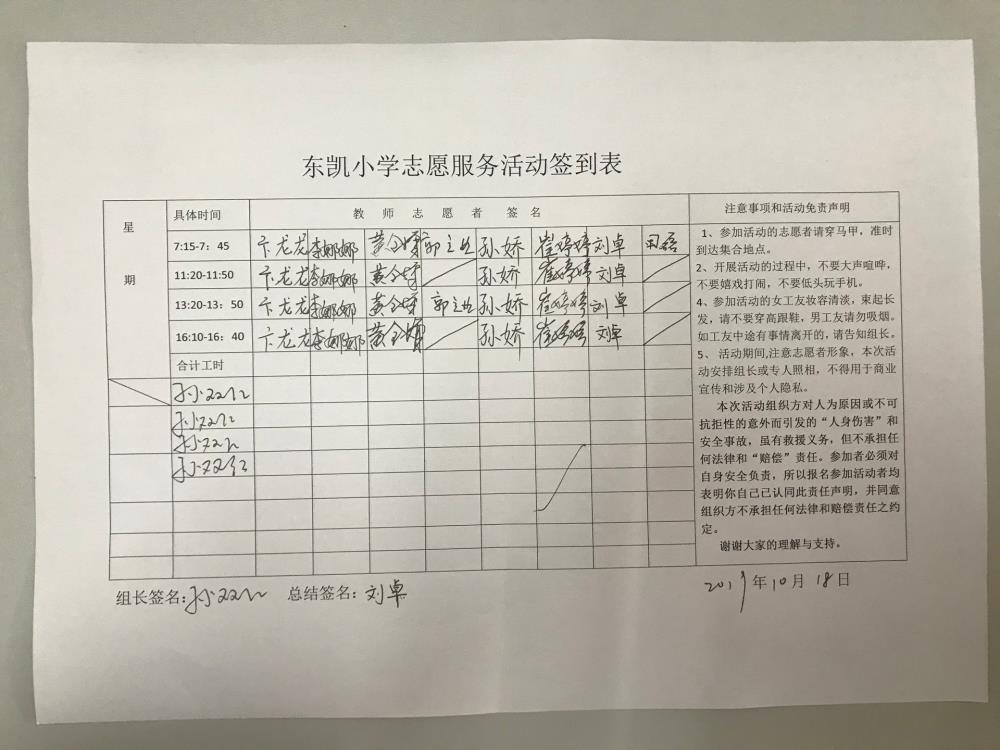 东凯小学志愿服务活动签到表
星期
具体时间 教师志愿者签名 注意事项和活动免责声明
7:15-7：45 卞龙龙 李娜娜 孙娇 崔婷婷 刘卓
11:20-11:50 卞龙龙 李娜娜 孙娇 崔婷婷 刘卓
13:20-13：50 卞龙龙 李娜娜 孙娇 崔婷婷 刘卓
16:10-16：40 卞龙龙 李娜娜 孙娇 崔婷婷 刘卓
合计工时
孙双红
孙双红
孙双红
孙双红
1、参加活动的志愿者请穿马甲，准时
到达集合地点。
2、开展活动的过程中，不要大声喧哗，
不要嬉戏打闹，不要低头玩手机。
4、参加活动的女工友妆容清淡，束起长
发，请不要穿高跟鞋，男工友请勿吸烟。
如工友中途有事情离开的，请告知组长。
5、活动期间,注意志愿者形象，本次活
动安排组长或专人照相，不得用于商业
宣传和涉及个人隐私。
本次活动组织方对人为原因或不可
抗拒性的意外而引发的“人身伤害”和
安全事故，虽有救援义务，但不承担任
何法律和“赔偿”责任。参加者必须对
自身安全负责，所以报名参加活动者均
表明你自己已认同此责任声明，并同意
组织方不承担任何法律和赔偿责任之约
定。
谢谢大家的理解与支持。
组长签名:孙双红 总结签名：刘卓 2019年10月18日